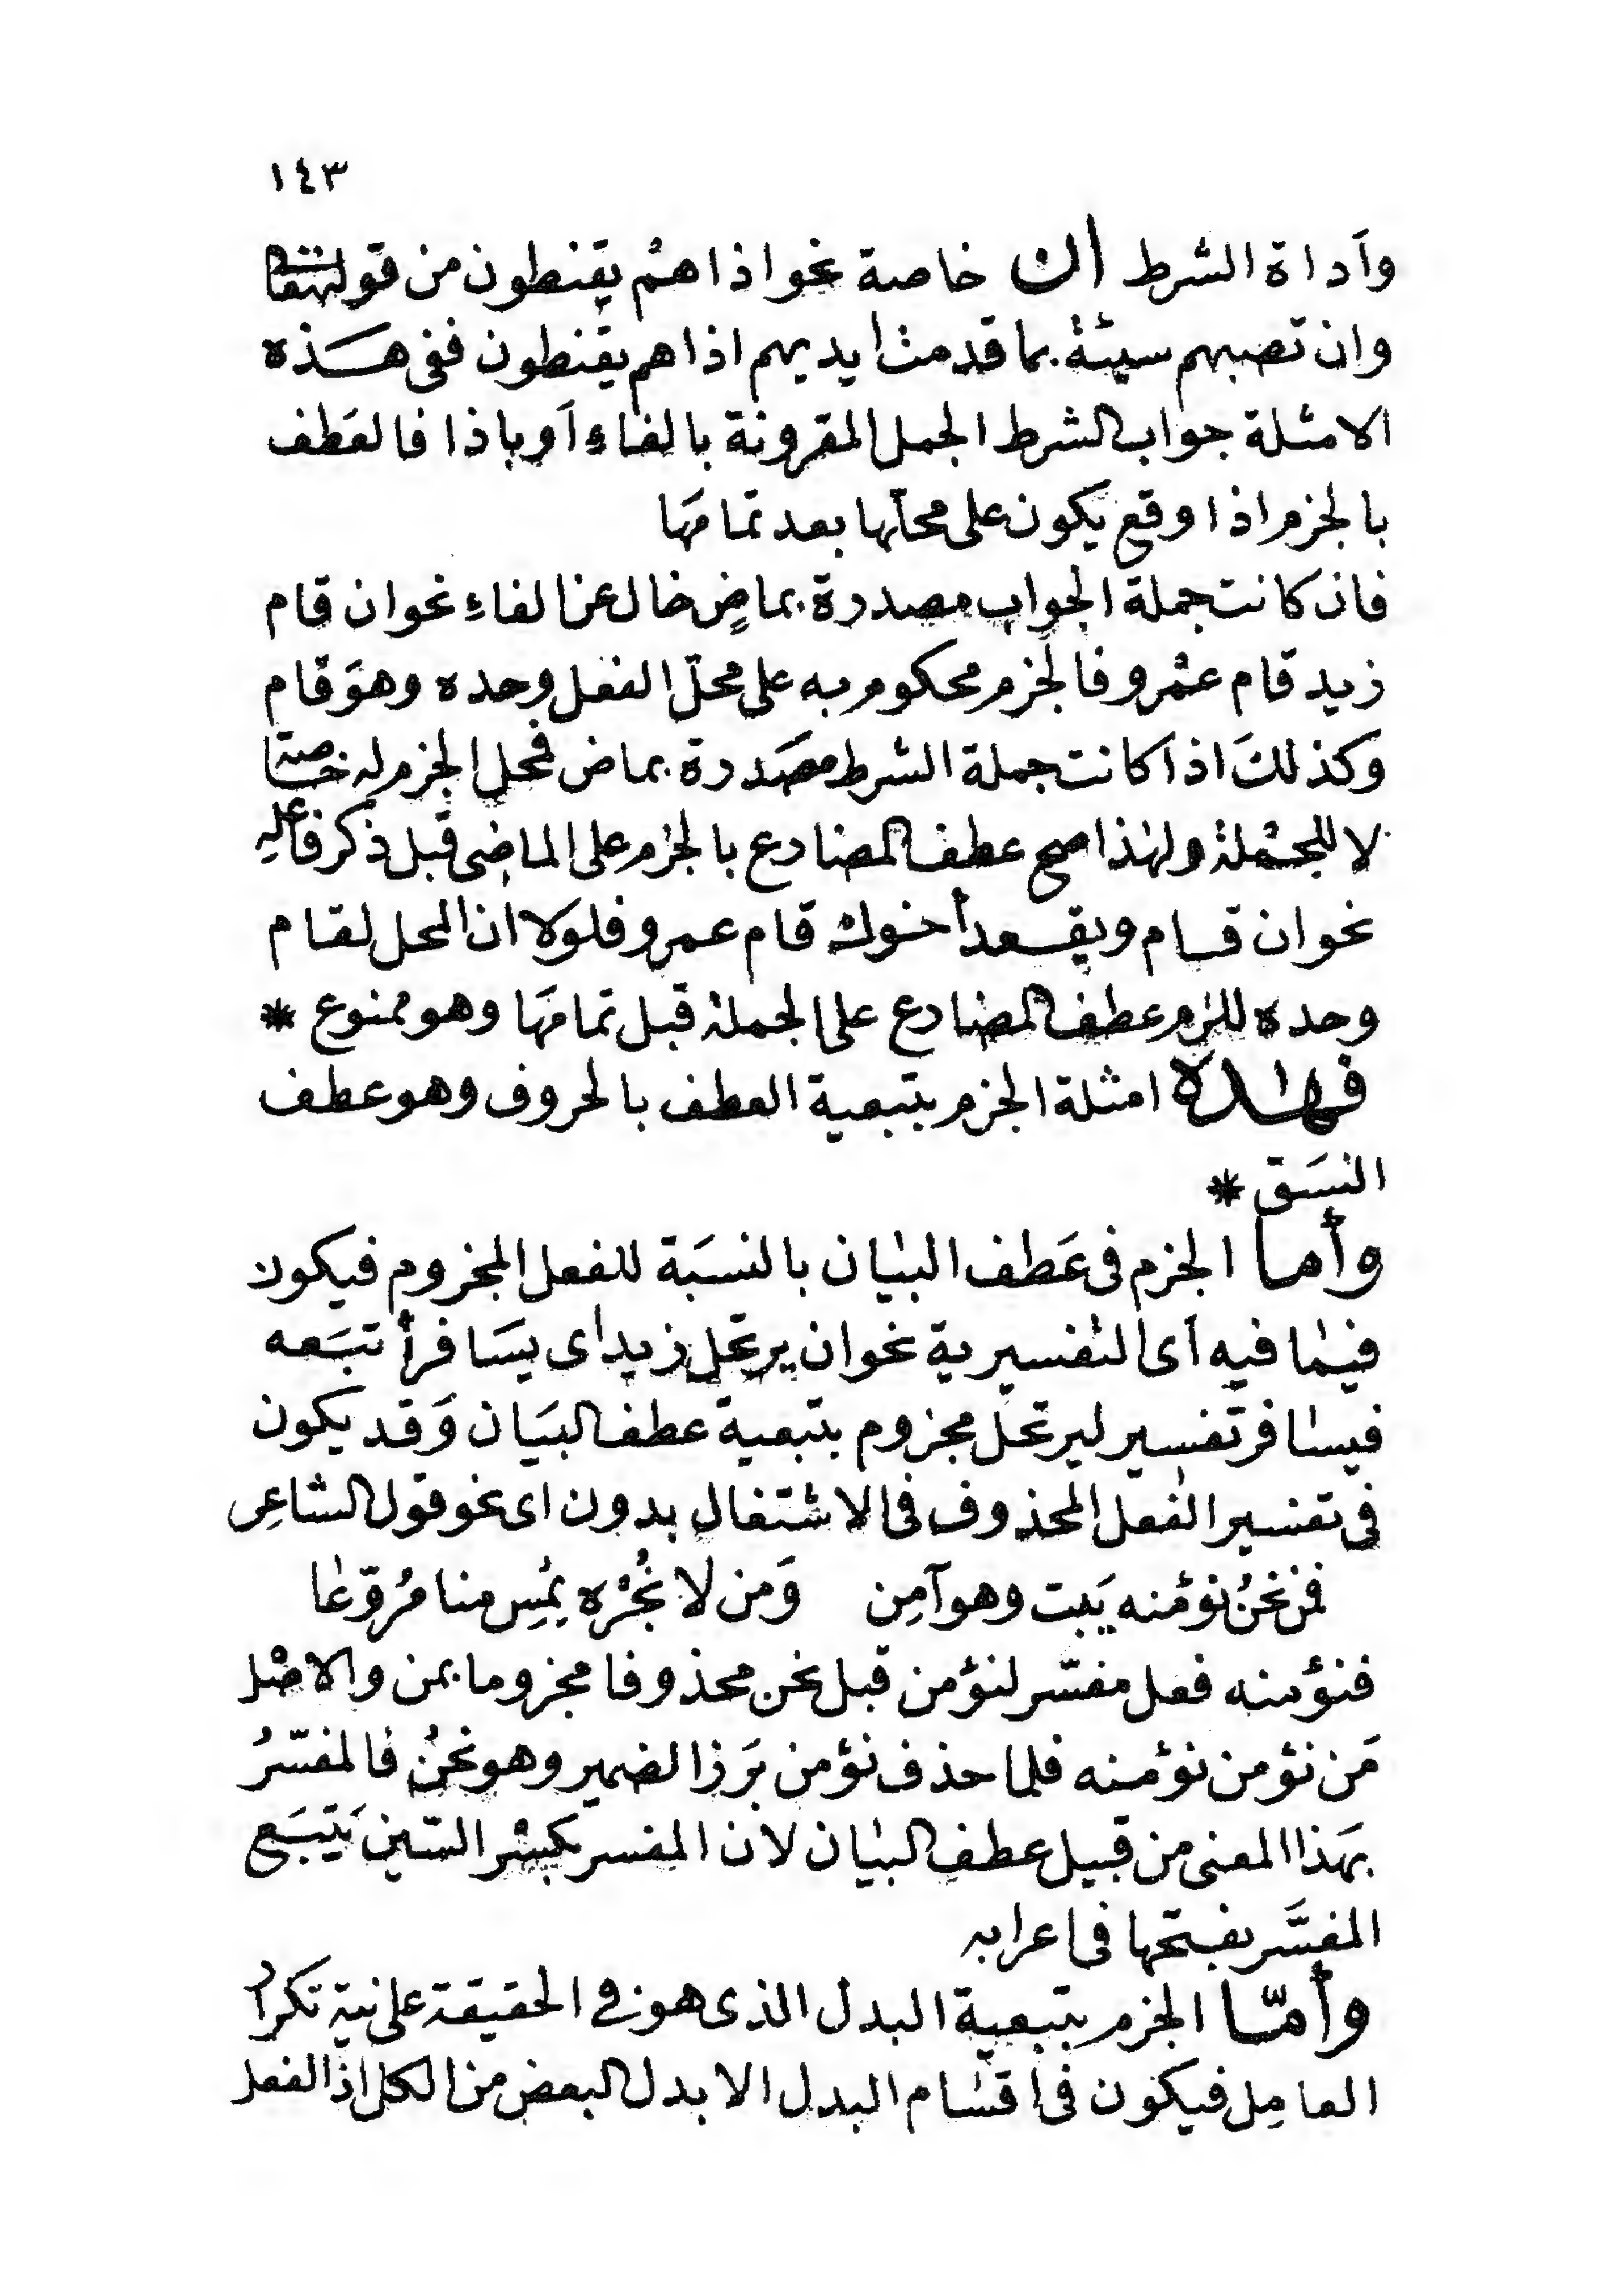 ١٤٣
وأداة الشرط إن خاصة نحو اذا هُم يقنطون من قوله تعالى
وان تصبهم سيئة بما قدمت ايديهم اذا هم يقنطون ففى هذه
الامثلة جواب الشرط الجمل المقرونة بالفاء أو باذا فالعَطف
بالجزم اذا وقع يكون على محلّها بعد تمامَها
فان كانت جملة الجواب مصدرة بماضٍ خال عن الفاءِ نحو ان قام
زيد قام عمْرو فالجزم محكوم به على محلّ الفعل وحده وهوَ قام
وكذلكَ اذا كانت جملة الشرط مصَدرة بماض فمحل الجزم له خاصة
لا للجمْلة ولهٰذا صح عطف المضارع بالجزم على الماضِى قبل ذكر فاعلهِ
نحو ان قام ويقعد أخوك قام عمرو فلولا ان المحل لقام
وحده للزم عطف المضارع على الجملة قبل تمامَها وهو ممنوع *
فهٰذه امثلة الجزم بتبعية العطف بالحروف وهو عطف
النسَق *
وأما الجزم فى عَطف البيٰان بالنسبَة للفعل المجزوم فيكون
فيمٰا فيه أى التفسيرية نحو ان يرتحل زيد اى يسَافر أتبَعه
فيسٰافر تفسير ليرتحل مجزوم بتبعية عطف البيَان وَقد يكون
فى تفسير الفعل المحذوف فى الاشتغال بدون اى نحو قول الشاعِر
فمن نحنُ نؤمنه يَبت وهو آمِن وَمن لا نُجْره يُمْسِ منا مُروّعٰا
فنؤمنه فعل مفسّر لنؤمن قبل نحن محذوفا مجزوما بمن والاصْل
مَن نؤمن نؤمنه فلما حذف نؤمن بَرَز الضمير وهو نحنُ فالمفسّرُ
بهَذا المعنى من قبيل عطف البيٰان لان المفسر بكسْر السّين يَتبَع
المفسَّر بفتحها فى اعرابه
وأمّا الجزم بتبعية البدل الذى هو فى الحقيقة على نية تكرار
العامِل فيكون فى اقسٰام البدل الا بدل البعض من الكل اذ الفعل